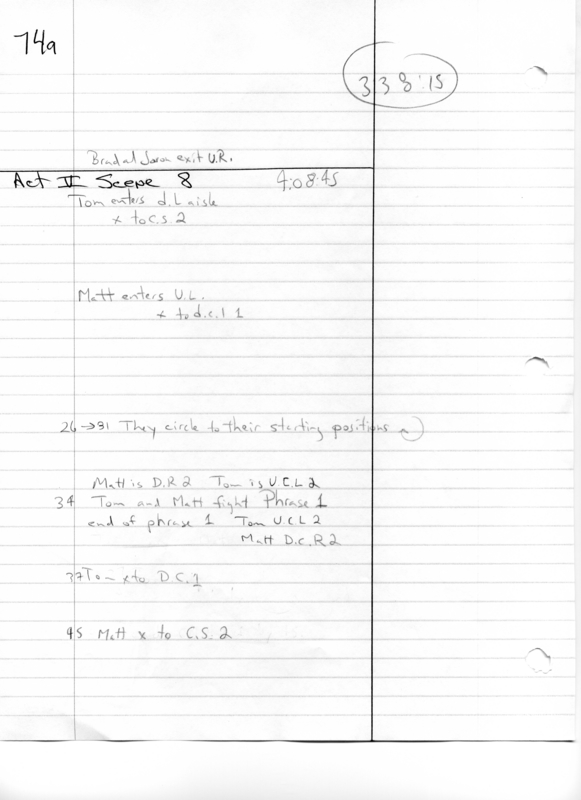 74a
338:15
Brad and Jason exit U.R.
Act V Scene 8 4:08:45
Tom enters d.L aisle
x to C.S. 2
Matt enters U.L.
x to d.c.l 1
26 → 31 They circle to their starting positions
Matt is D.R 2 Tom is U.C.L 2
34 Tom and Matt fight Phrase 1
end of phrase 1 Tom U.C.L 2
Matt D.C.R 2
37 Tom x to D.C. 1
45 Matt x to C.S. 2